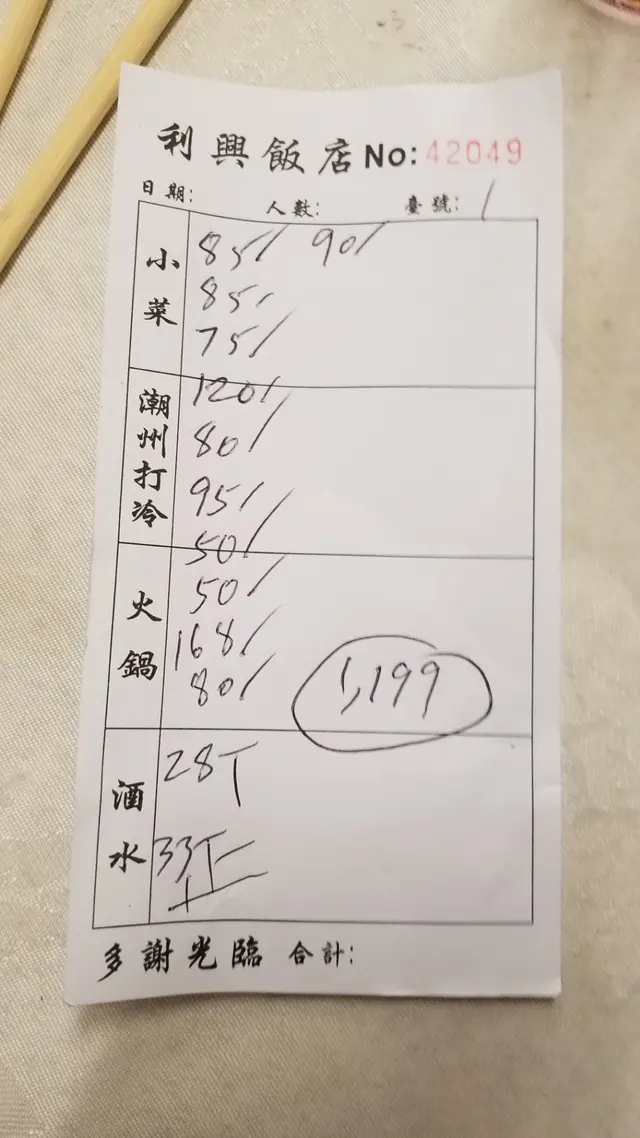 利興飯店 No: 42049
日期: 人數: 臺號: 1
小菜
85/ 90/
85/
75/
潮州打冷
120/
80/
95/
50/
火鍋
50/
168/
80/
1,199
酒水
28T
33T
多謝光臨 合計: